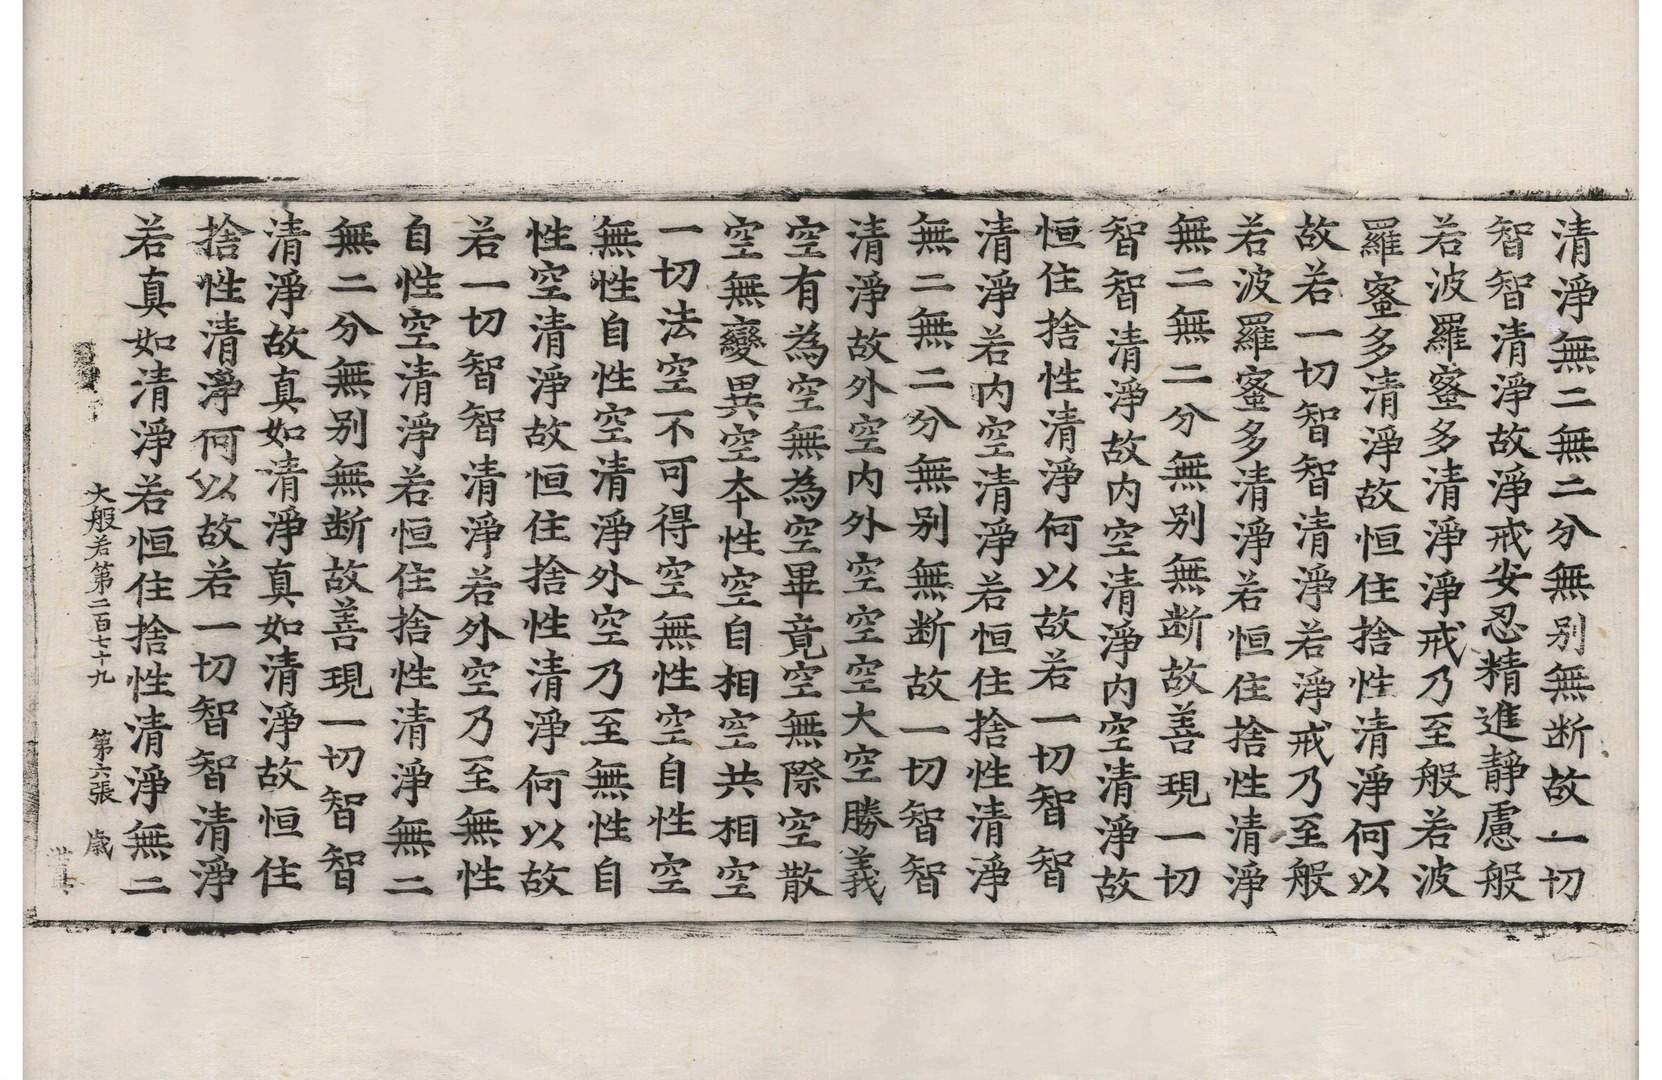 清淨無二無二分無別無断故一切
智智清淨故淨戒安忍精進靜慮般
若波羅蜜多清淨淨戒乃至般若波
羅蜜多清淨故恒住捨性清淨何以
故若一切智智清淨若淨戒乃至般
若波羅蜜多清淨若恒住捨性清淨
無二無二分無別無断故善現一切
智智清淨故内空清淨内空清淨故
恒住捨性清淨何以故若一切智智
清淨若内空清淨若恒住捨性清淨
無二無二分無別無断故一切智智
清淨故外空内外空空空大空勝義
空有為空無為空畢竟空無際空散
空無變異空本性空自相空共相空
一切法空不可得空無性空自性空
無性自性空清淨外空乃至無性自
性空清淨故恒住捨性清淨何以故
若一切智智清淨若外空乃至無性
自性空清淨若恒住捨性清淨無二
無二分無別無断故善現一切智智
清淨故真如清淨真如清淨故恒住
捨性清淨何以故若一切智智清淨
若真如清淨若恒住捨性清淨無二
大般若第二百七十九 第六張 歳